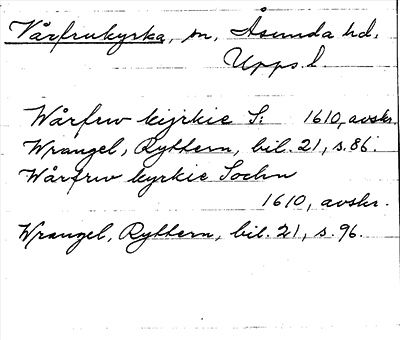 Vårfrukyrka, sn, Åsunda hd,
Upps. l.
Wårfrw kijrkie S: 1610, avskr.
Wrangel, Ryttern, bil. 21, s. 86.
Wårfrw kyrkie Sochn
1610, avskr.
Wrangel, Ryttern, bil. 21, s. 96.